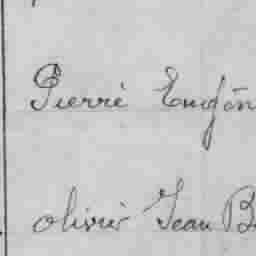 Pierre Eugèn
olivier Jean B